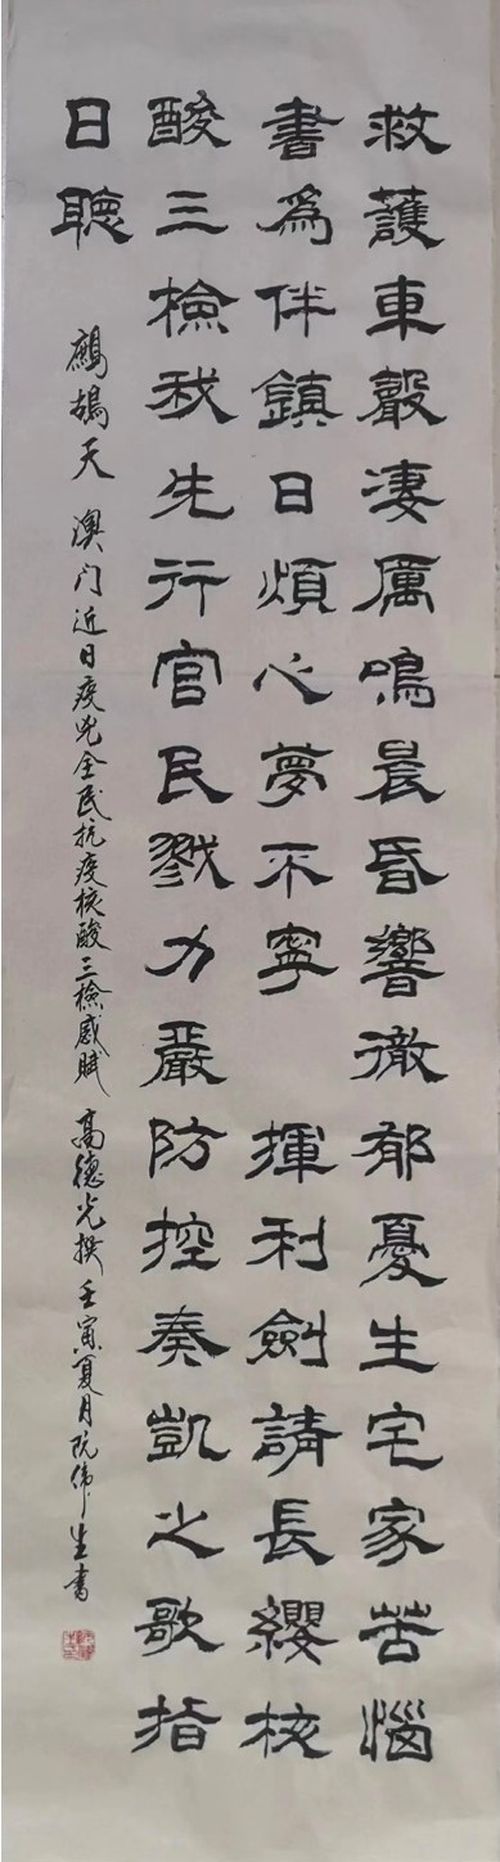 救護車聲淒厲鳴晨昏響徹郁憂生宅家苦惱
書爲伴鎮日煩心夢不寧 揮利劍請長纓核
酸三檢我先行官民戮力嚴防控奏凱之歌指
日聽
鷓鴣天 澳门近日疫兇全民抗疫核酸三檢感賦 高德光撰 壬寅夏月阮伟生書